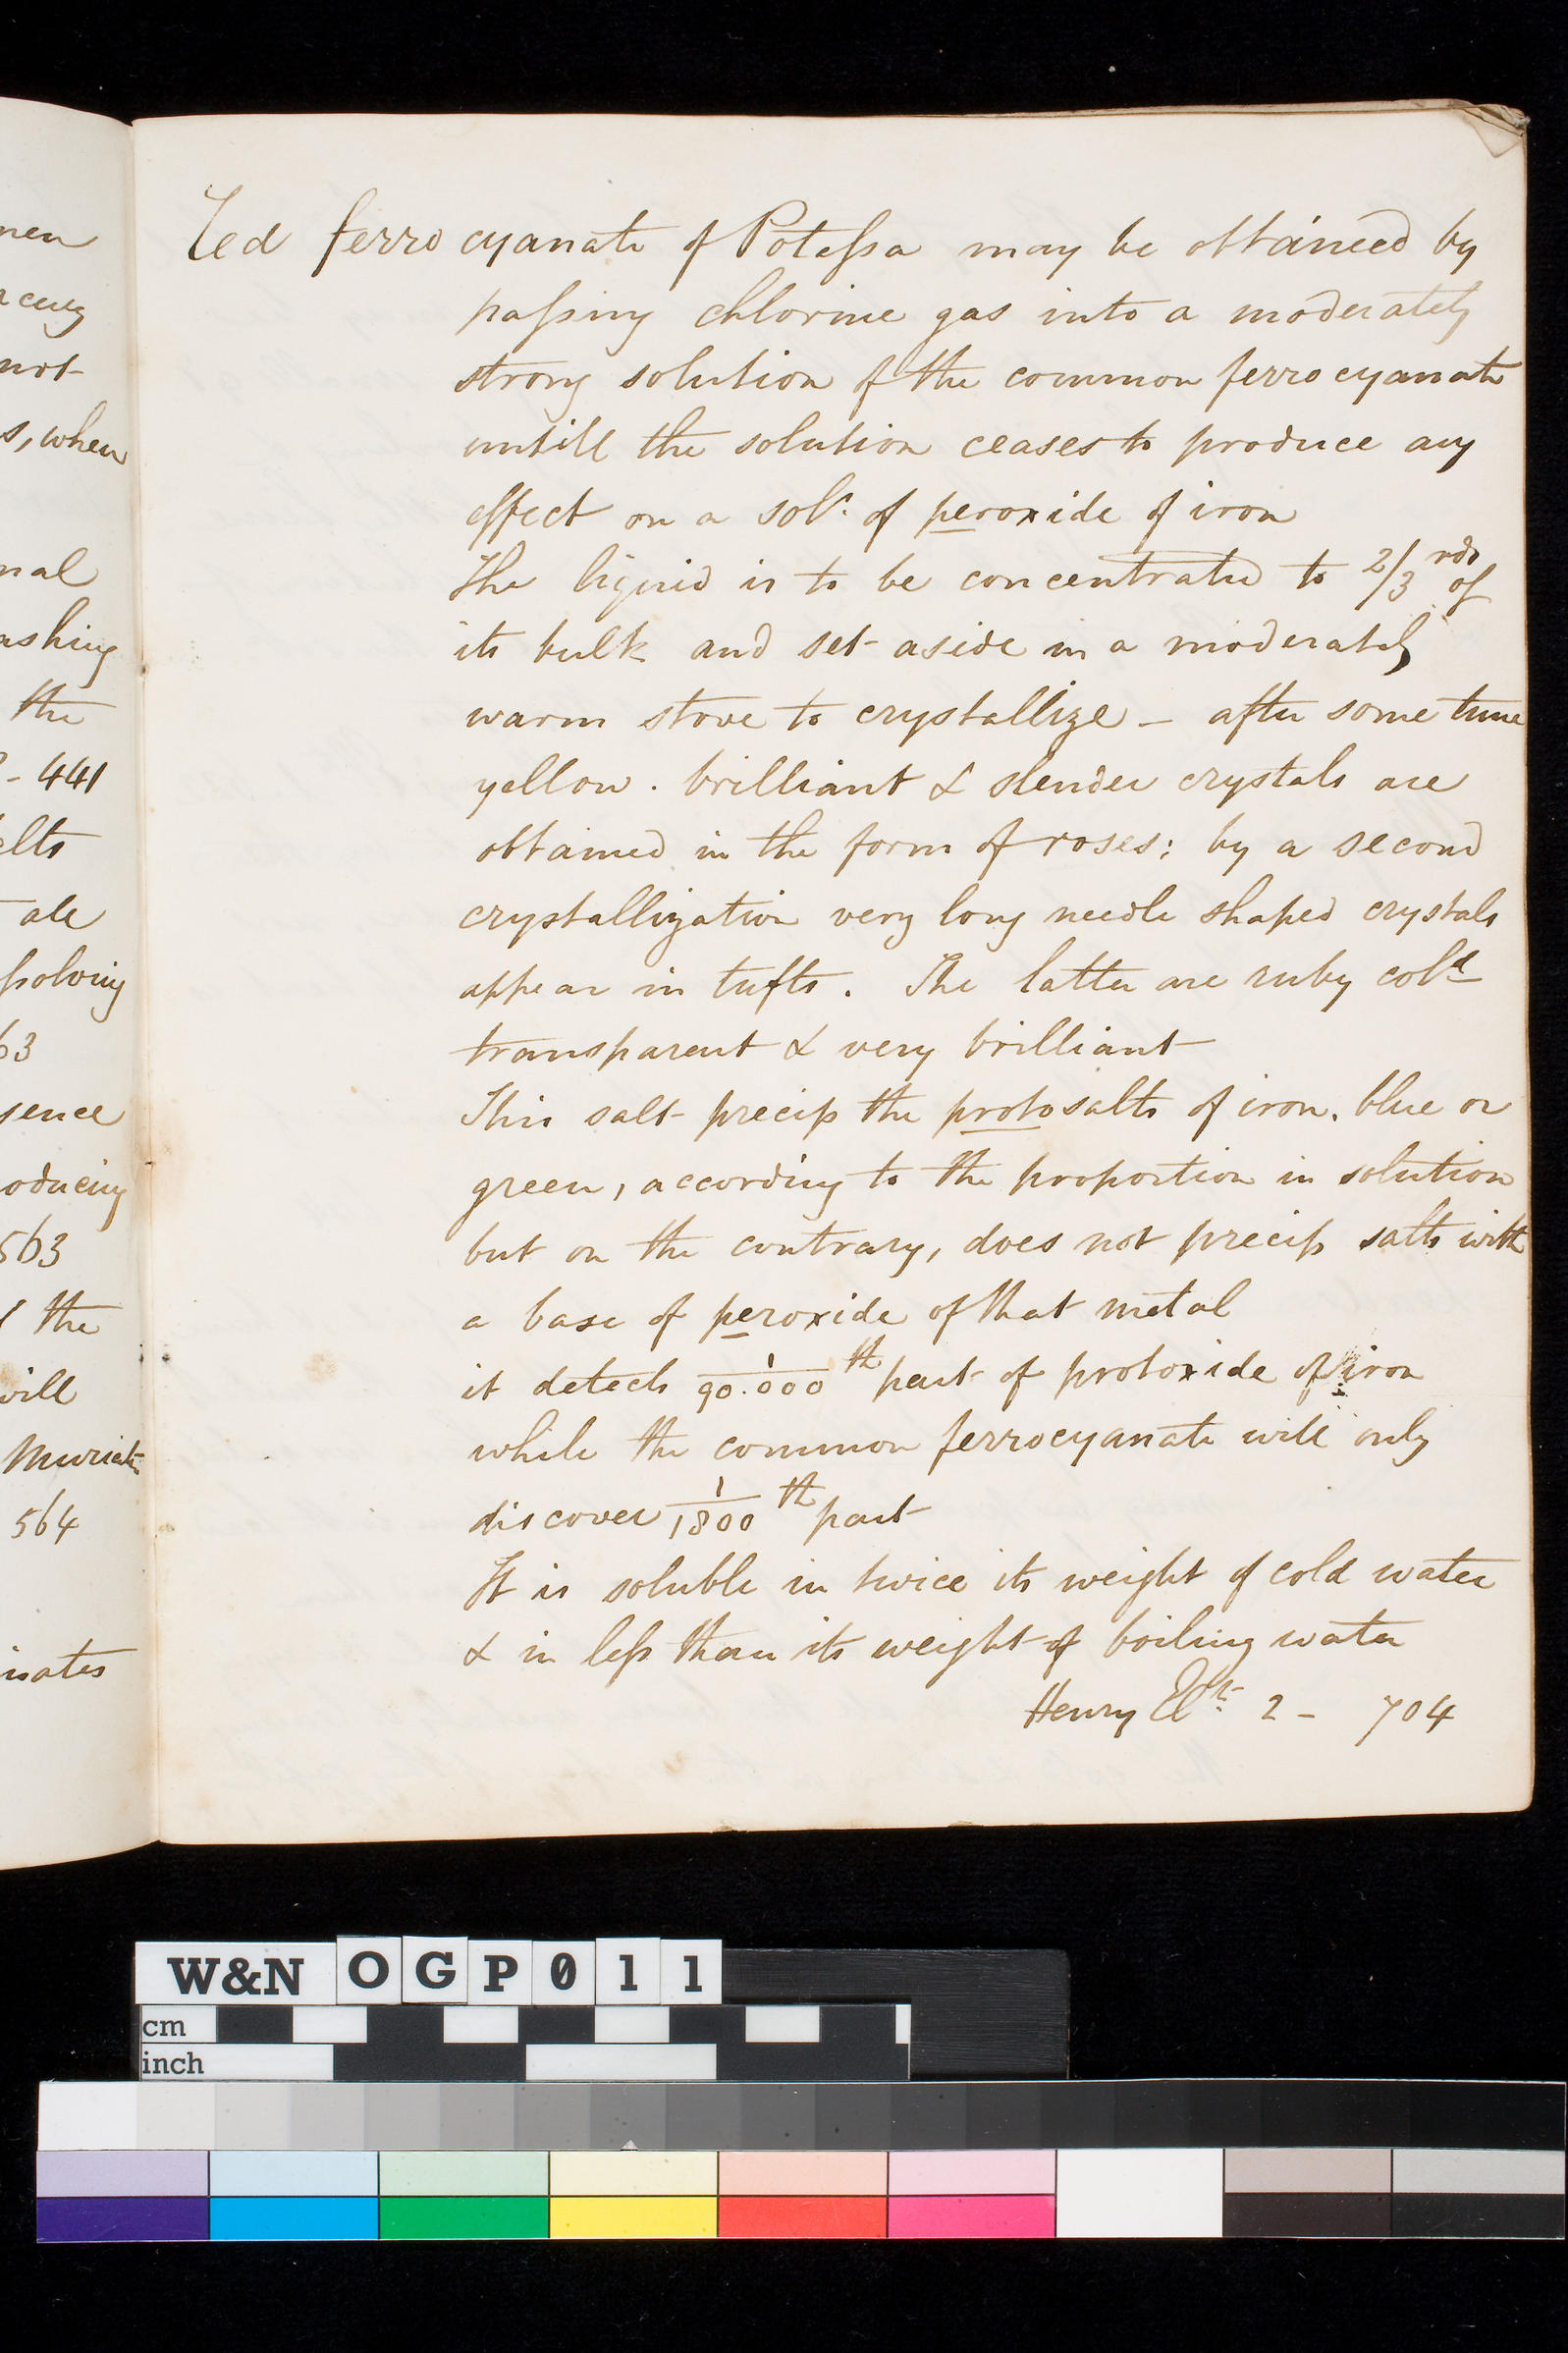 nen
not
s, when
nal
ashing
the
- 441
ale
63
sence
oducing
563
the
will
Muriate
564
nates
Red ferro cyanate of Potassa may be obtained by
passing chlorine gas into a moderately
strong solution of the common ferrocyanate
untill the solution ceases to produce any
effect on a soln. of peroxide of iron
The liquid is to be concentrated to 2/3 rds of
its bulk and set aside in a moderately
warm stove to crystallize - after some time
yellow . brilliant & slender crystals are
obtained in the form of roses; by a second
crystallization very long needle shaped crystals
appear in tufts. The latter are ruby cold
transparent & very brilliant
This salt precip the protosalts of iron. blue or
green, according to the proportion in solution
but on the contrary, does not precip salts with
a base of peroxide of that metal
it detects 1/90.000 th part of protoxide of iron
while the common ferrocyanate will only
discover 1/1800 th part
It is soluble in twice its weight of cold water
& in less than its weight of boiling water
Henry 2 - 704
W&N OGP011
cm
inch